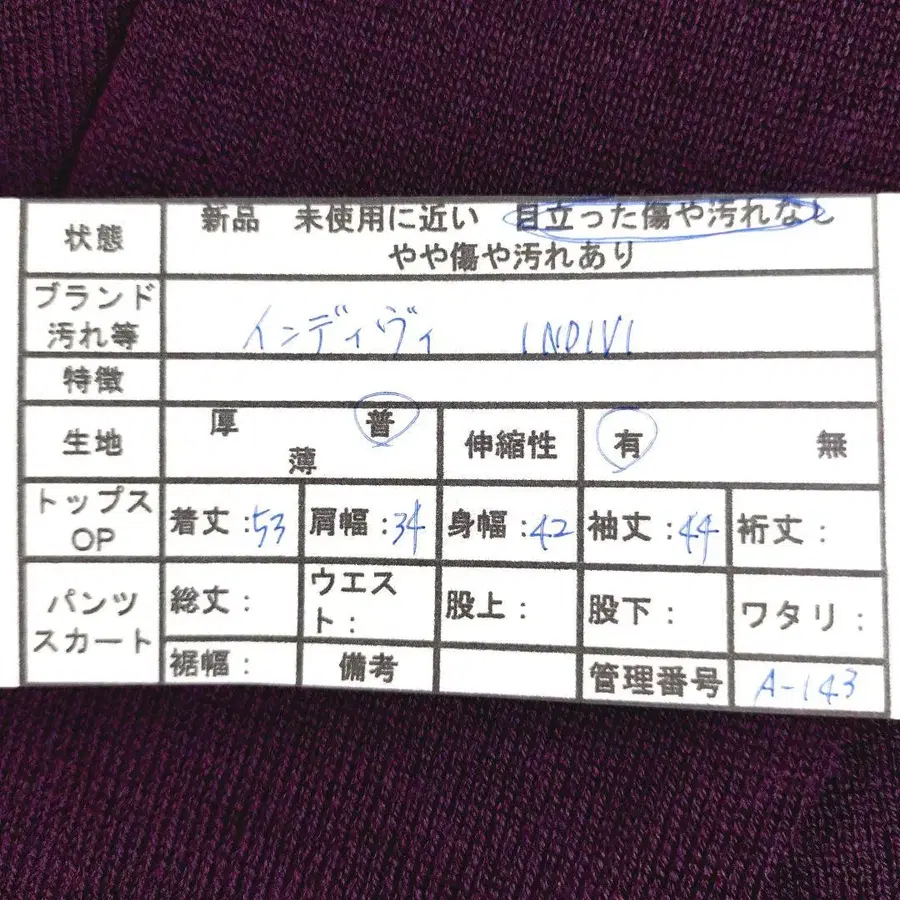 状態 新品 未使用に近い 目立った傷や汚れなし
やや傷や汚れあり
ブランド
汚れ等 インディヴィ INDIVI
特徴
生地 厚 普 薄 伸縮性 有 無
トップス
OP 着丈:53 肩幅:34 身幅:42 袖丈:44 裄丈:
パンツ
スカート 総丈: ウエス
ト: 股上: 股下: ワタリ:
裾幅: 備考 管理番号 A-143